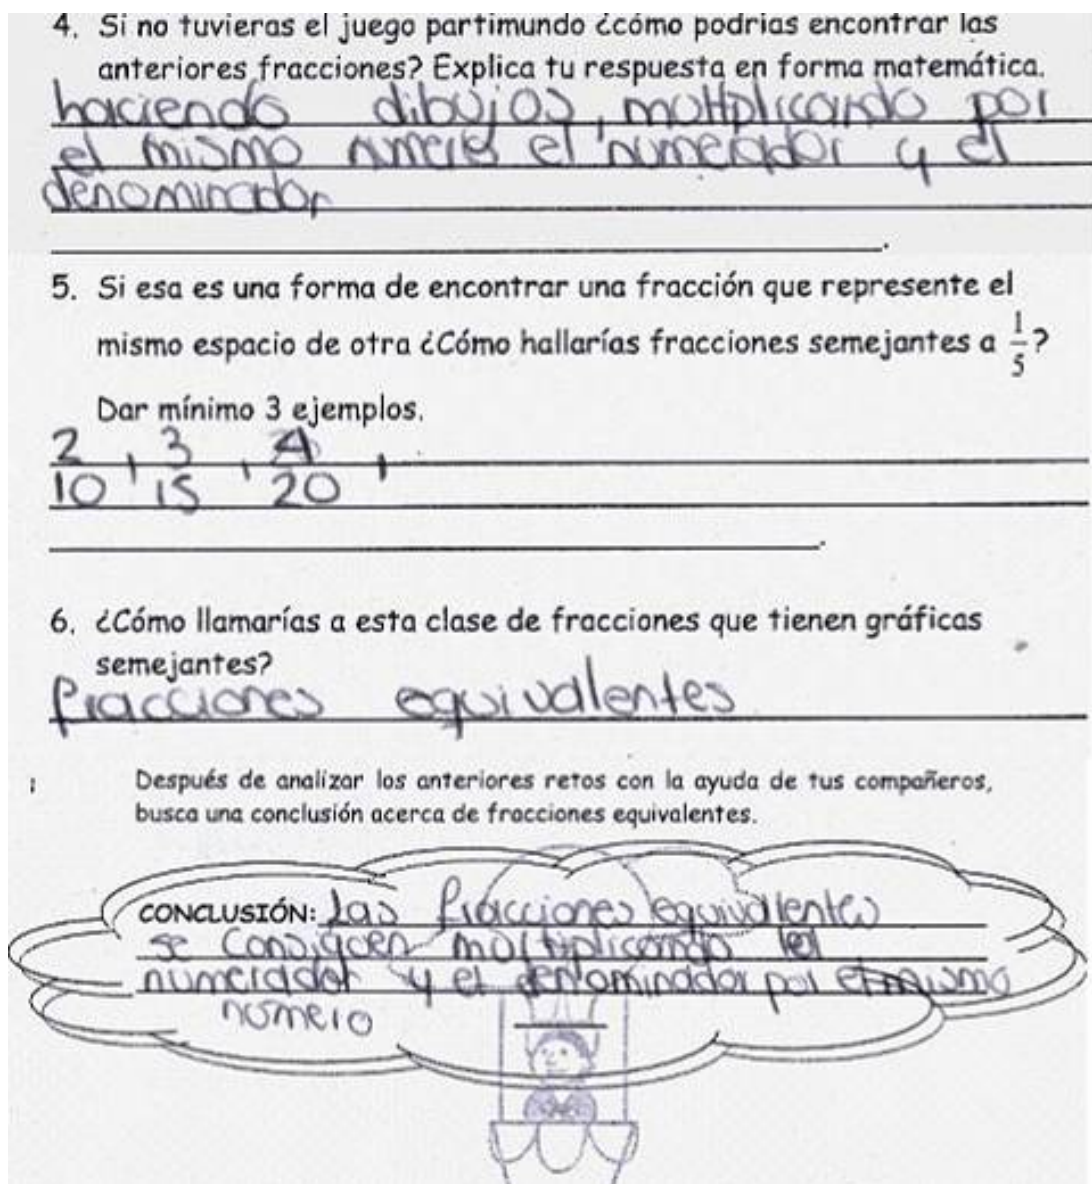 4. Si no tuvieras el juego partimundo ¿cómo podrías encontrar las
anteriores fracciones? Explica tu respuesta en forma matemática.
haciendo dibujos, multiplicando por
el mismo numero el numerador y el
denominador
5. Si esa es una forma de encontrar una fracción que represente el
mismo espacio de otra ¿Cómo hallarías fracciones semejantes a 1/5?
Dar mínimo 3 ejemplos.
2/10, 3/15, 4/20,
6. ¿Cómo llamarías a esta clase de fracciones que tienen gráficas
semejantes?
fracciones equivalentes
Después de analizar los anteriores retos con la ayuda de tus compañeros,
busca una conclusión acerca de fracciones equivalentes.
CONCLUSIÓN: Las fracciones equivalentes
se consiguen multiplicando el
numerador y el denominador por el mismo
número